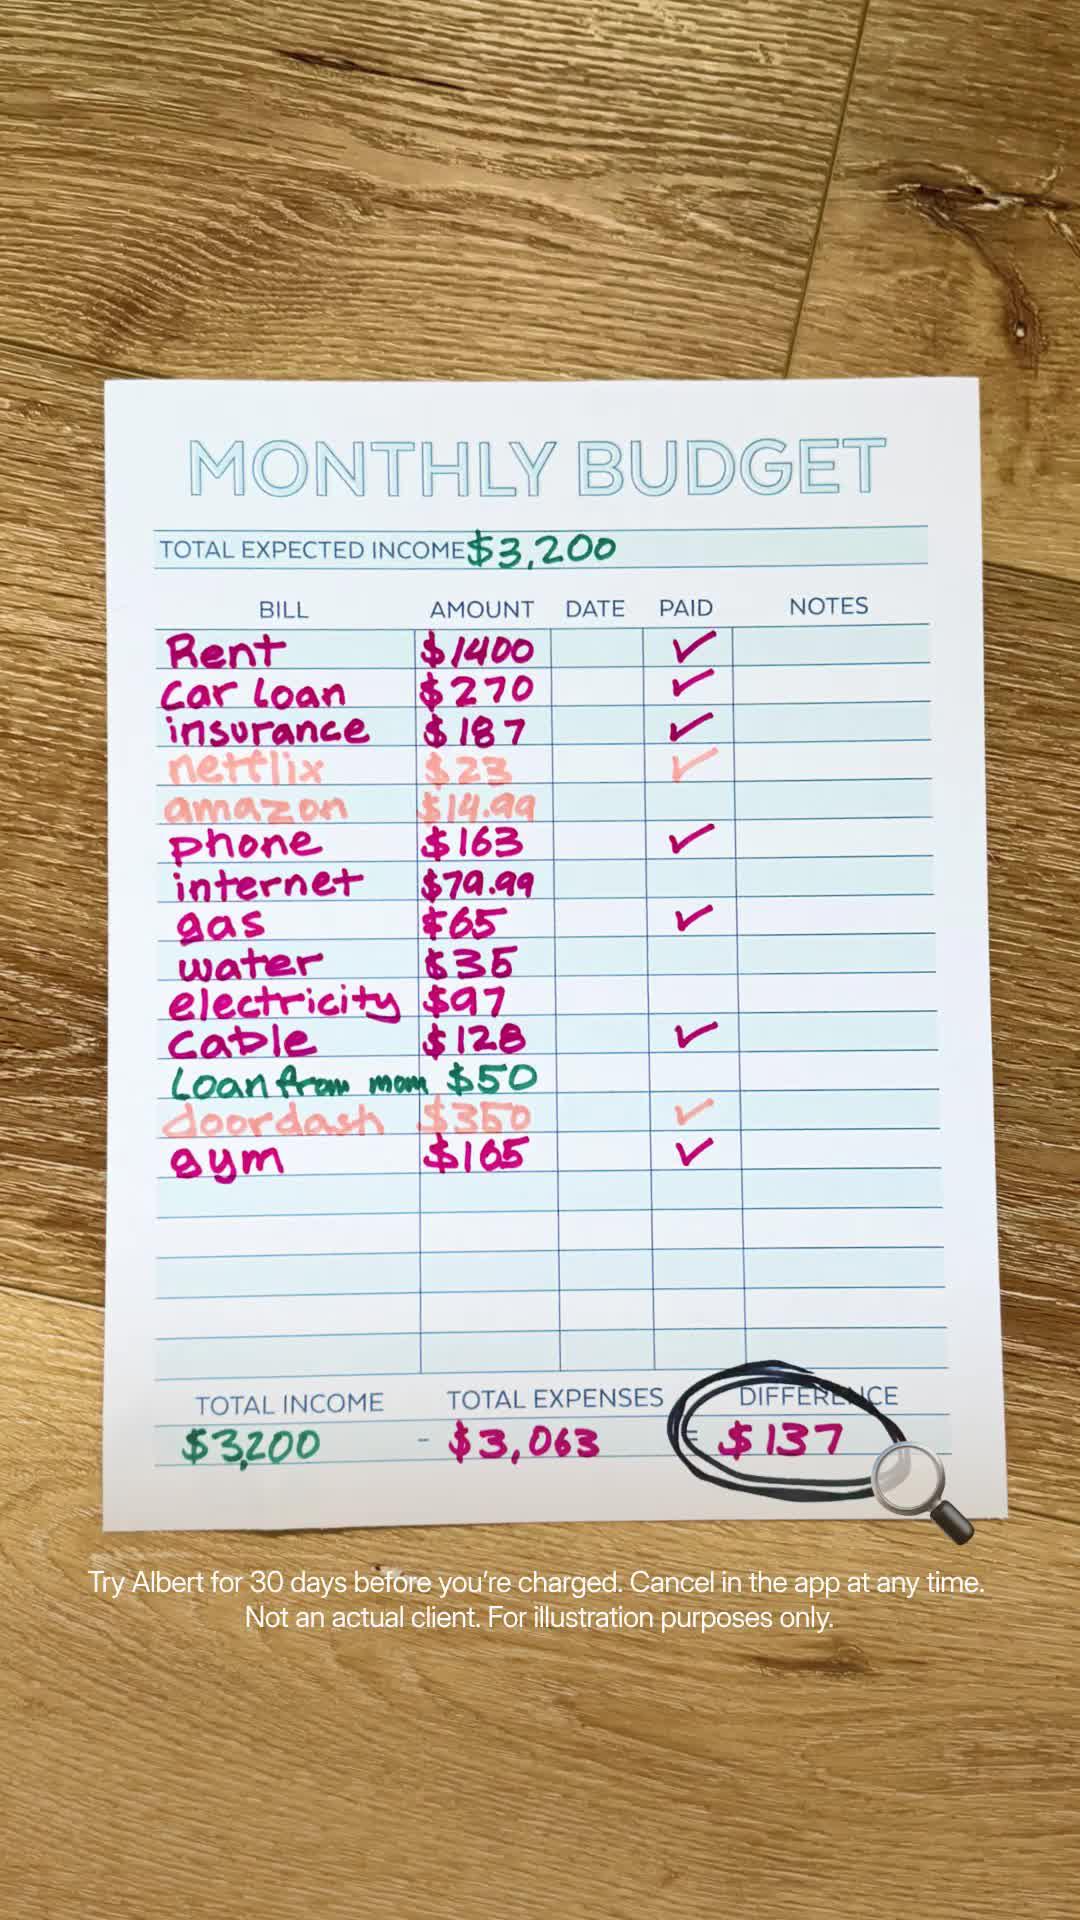 MONTHLY BUDGET
TOTAL EXPECTED INCOME $3,200
BILL AMOUNT DATE PAID NOTES
Rent $1400 ✓
car loan $270 ✓
insurance $187 ✓
netflix $23 ✓
amazon $14.99
phone $163 ✓
internet $79.99
gas $65 ✓
water $35
electricity $97
Cable $128 ✓
Loan from mom $50
doordash $350 ✓
gym $165 ✓
TOTAL INCOME TOTAL EXPENSES DIFFERENCE
$3,200 - $3,063 = $137
Try Albert for 30 days before you’re charged. Cancel in the app at any time.
Not an actual client. For illustration purposes only.